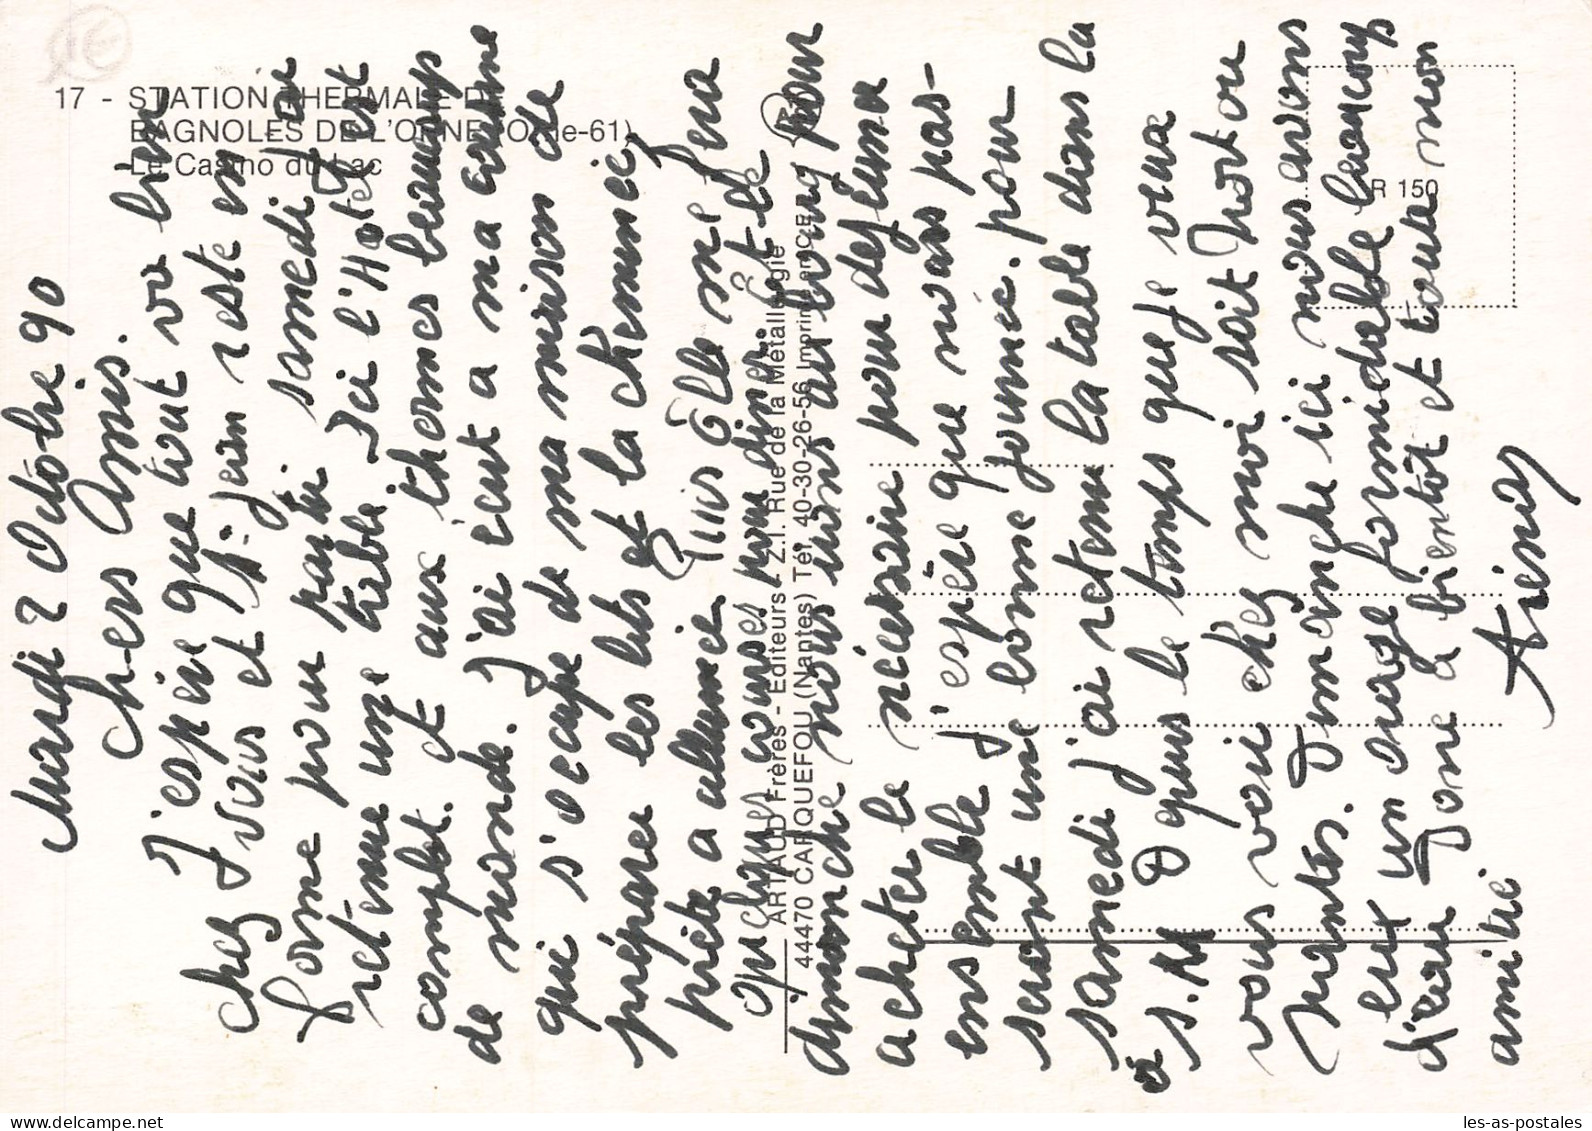 17 - STATION THERMALE DE
BAGNOLES DE L'ORNE (Orne-61)
Le Casino du Lac
R 150
ARTAUD Frères - Editeurs - Z.I. Rue de la Métallurgie
44470 CARQUEFOU (Nantes) Tél. 40-30-26-56 Imprimé en C.E.E.
Mardi 2 Octobre 90
Chers Amis.
J'espère que tout va bien
chez vous et J. Jean reste en
forme pour partir samedi j'ai
retenue une table. Ici l'Hotel est
complet. et aux thermes beaucoup
de monde. J'ai écrit a ma
qui s'occupe de ma maison de
préparer les lits et la cheminée
prète a allumer Puis Elle me fera
quelques courses pour diner. et le
dimanche nous irons au bourg pour
acheter le nécessaire pour dejeuner
ensemble j'espère que nous pas-
serons une bonne journée. pour
samedi j'ai retenu la table dans la
S.M Depuis le temps que je veux
vous voir chez moi soit Mortou
Nantes. Dimanche ici nous avons
eut un orage formidable beaucoup
d'eau Donc a bientôt et toute mon
amitié